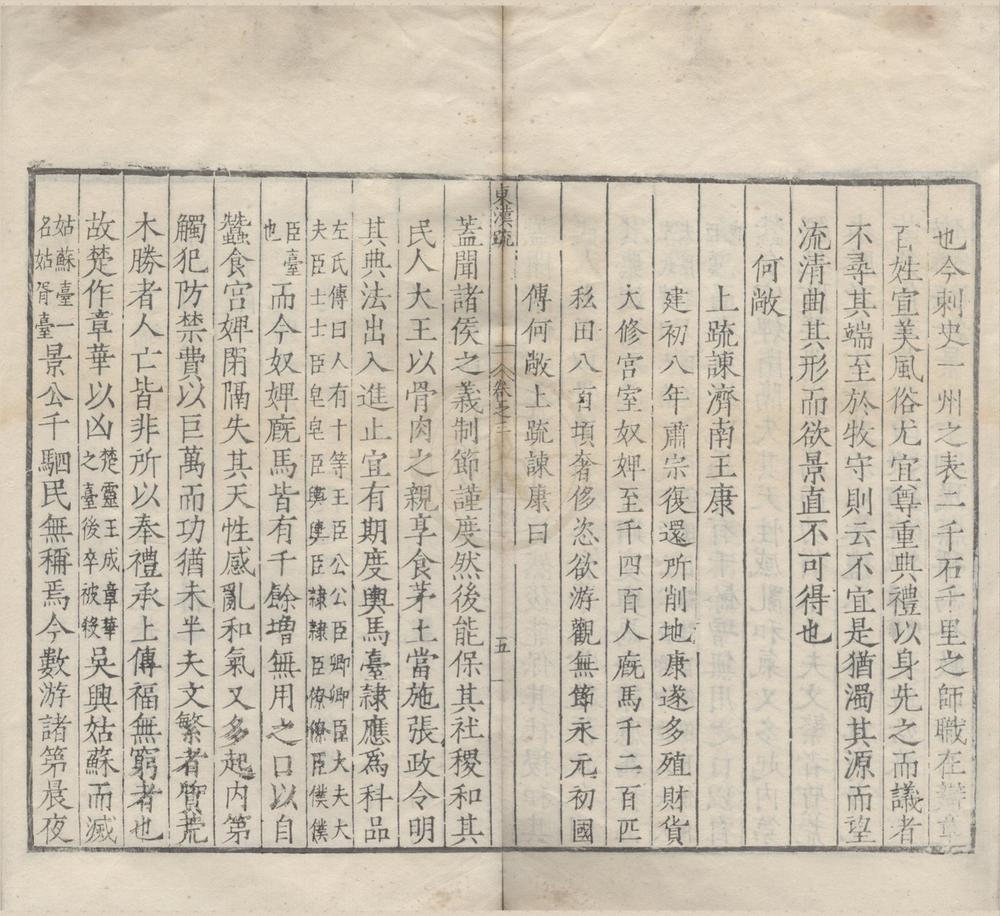 也今刺史一州之表二千石千里之師職在辯章
百姓宣美風俗尤宜尊重典禮以身先之而議者
不尋其端至於牧守則云不宜是猶濁其源而望
流清曲其形而欲景直不可得也
何敞
上疏諫濟南王康
建初八年肅宗復還所削地康遂多殖財貨
大修宮室奴婢至千四百人廐馬千二百匹
私田八百頃奢侈恣欲游觀無節永元初國
傅何敞上疏諫康曰
東漢疏
卷之三
五
蓋聞諸侯之義制節謹度然後能保其社稷和其
民人大王以骨肉之親享食茅土當施張政令明
其典法出入進止宜有期度輿馬臺隸應爲科品
左氏傳曰人有十等王臣公公臣卿卿臣大夫大
夫臣士士臣皂皂臣輿輿臣隸隸臣僚僚臣僕僕
臣臺也而今奴婢廐馬皆有千餘增無用之口以自
蠶食宮婢閉隔失其天性感亂和氣又多起內第
觸犯防禁費以巨萬而功猶未半夫文繁者質荒
木勝者人亡皆非所以奉禮承上傳福無窮者也
故楚作章華以凶楚靈王成章華之臺後卒被殺吳興姑蘇而滅
姑蘇臺一名姑胥臺景公千駟民無稱焉今數游諸第晨夜